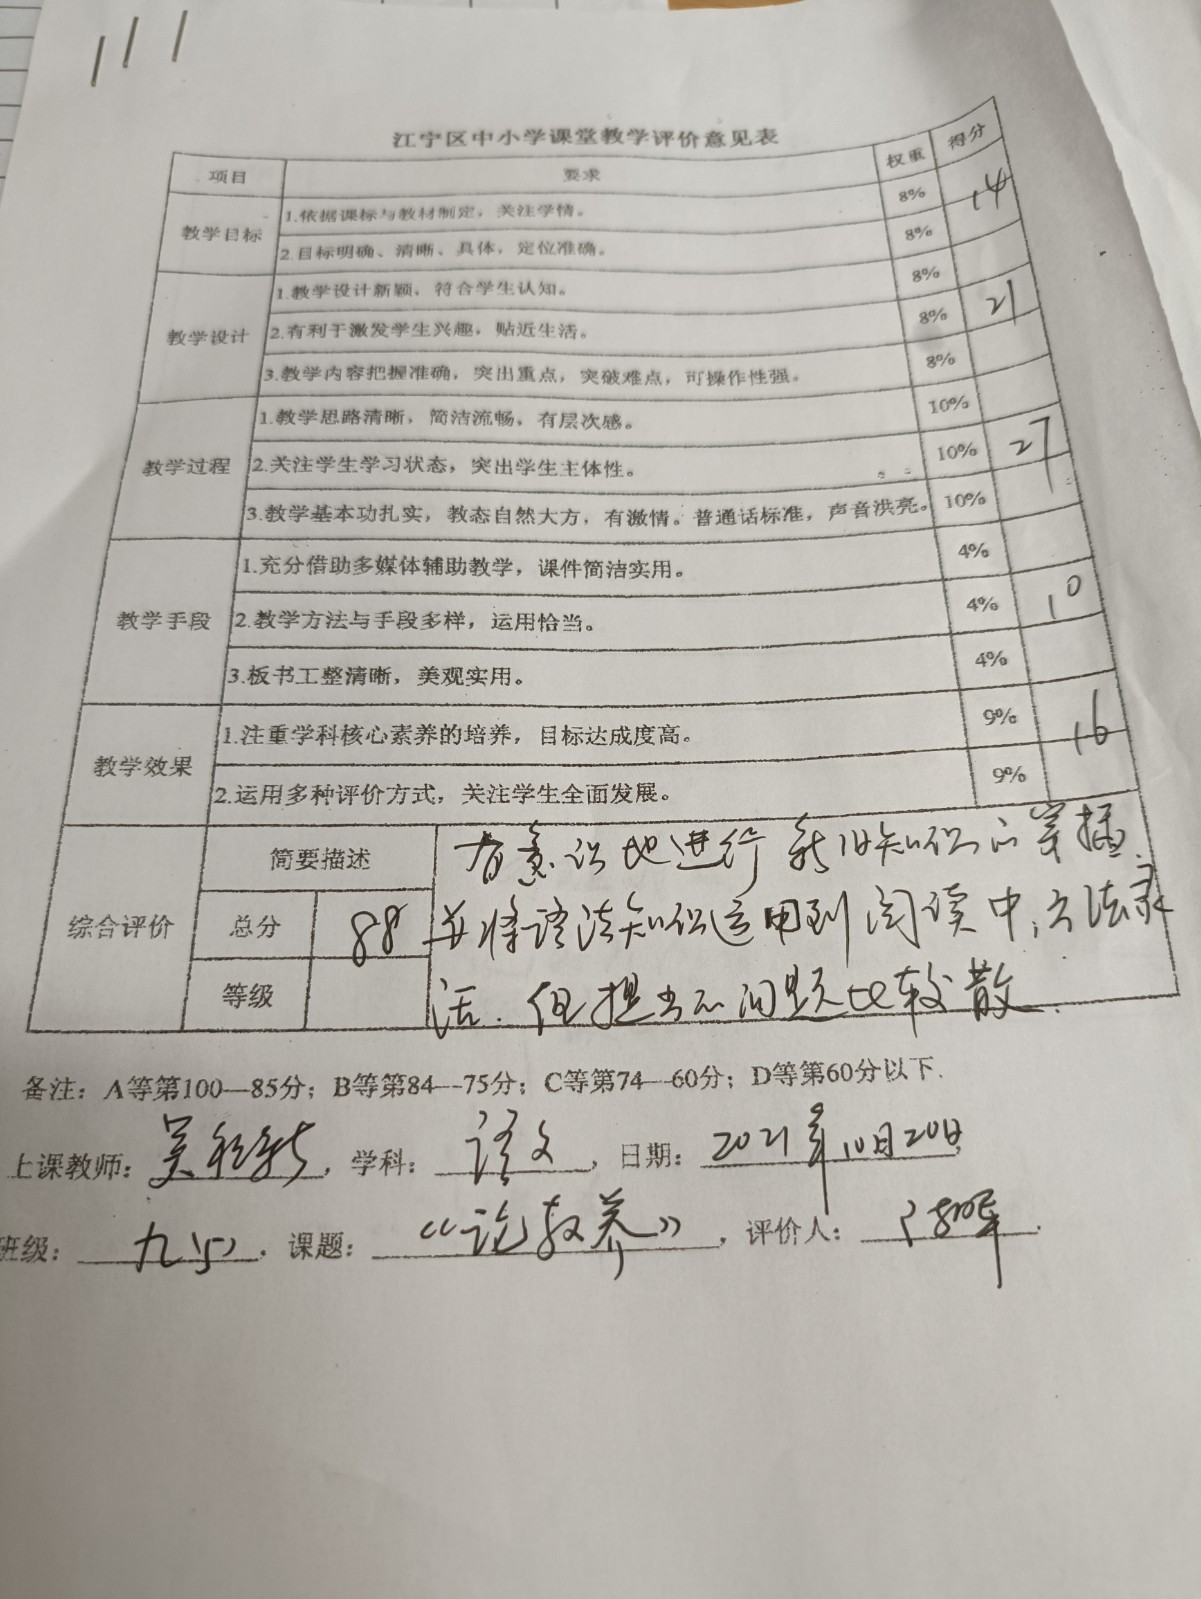 江宁区中小学课堂教学评价意见表
项目 要求 权重 得分
教学目标 1.依据课标与教材制定，关注学情。 8% 14
2.目标明确、清晰、具体，定位准确。 8%
教学设计 1.教学设计新颖，符合学生认知。 8% 21
2.有利于激发学生兴趣，贴近生活。 8%
3.教学内容把握准确，突出重点，突破难点，可操作性强。 8%
教学过程 1.教学思路清晰，简洁流畅，有层次感。 10% 27
2.关注学生学习状态，突出学生主体性。 10%
3.教学基本功扎实，教态自然大方，有激情。普通话标准，声音洪亮。 10%
教学手段 1.充分借助多媒体辅助教学，课件简洁实用。 4% 10
2.教学方法与手段多样，运用恰当。 4%
3.板书工整清晰，美观实用。 4%
教学效果 1.注重学科核心素养的培养，目标达成度高。 9% 16
2.运用多种评价方式，关注学生全面发展。 9%
综合评价 简要描述 有意识地进行新旧知识的穿插，
总分 88 并将语法知识运用到阅读中，方法灵
等级 活．但提出的问题比较散．
备注：A等第100—85分；B等第84--75分；C等第74--60分；D等第60分以下．
上课教师： ，学科： 语文 ，日期： 2021年10月20日
班级： ，课题： 《论教养》 ，评价人：